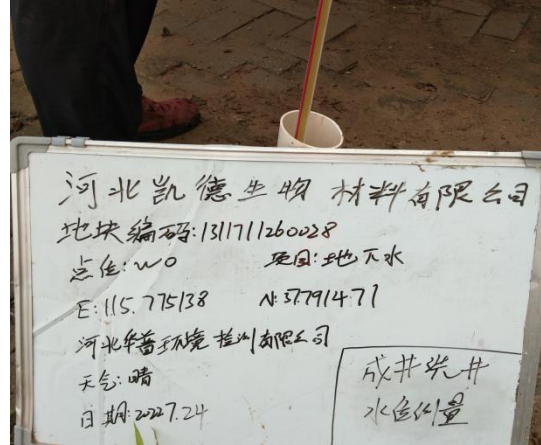 河北凯德生物材料有限公司
地块编码:1311711260028
点位:W0 项目:地下水
E:115.775138 N:37.791471
河北华普环境检测有限公司
天气:晴
日期:2022.7.24
成井洗井
水位测量